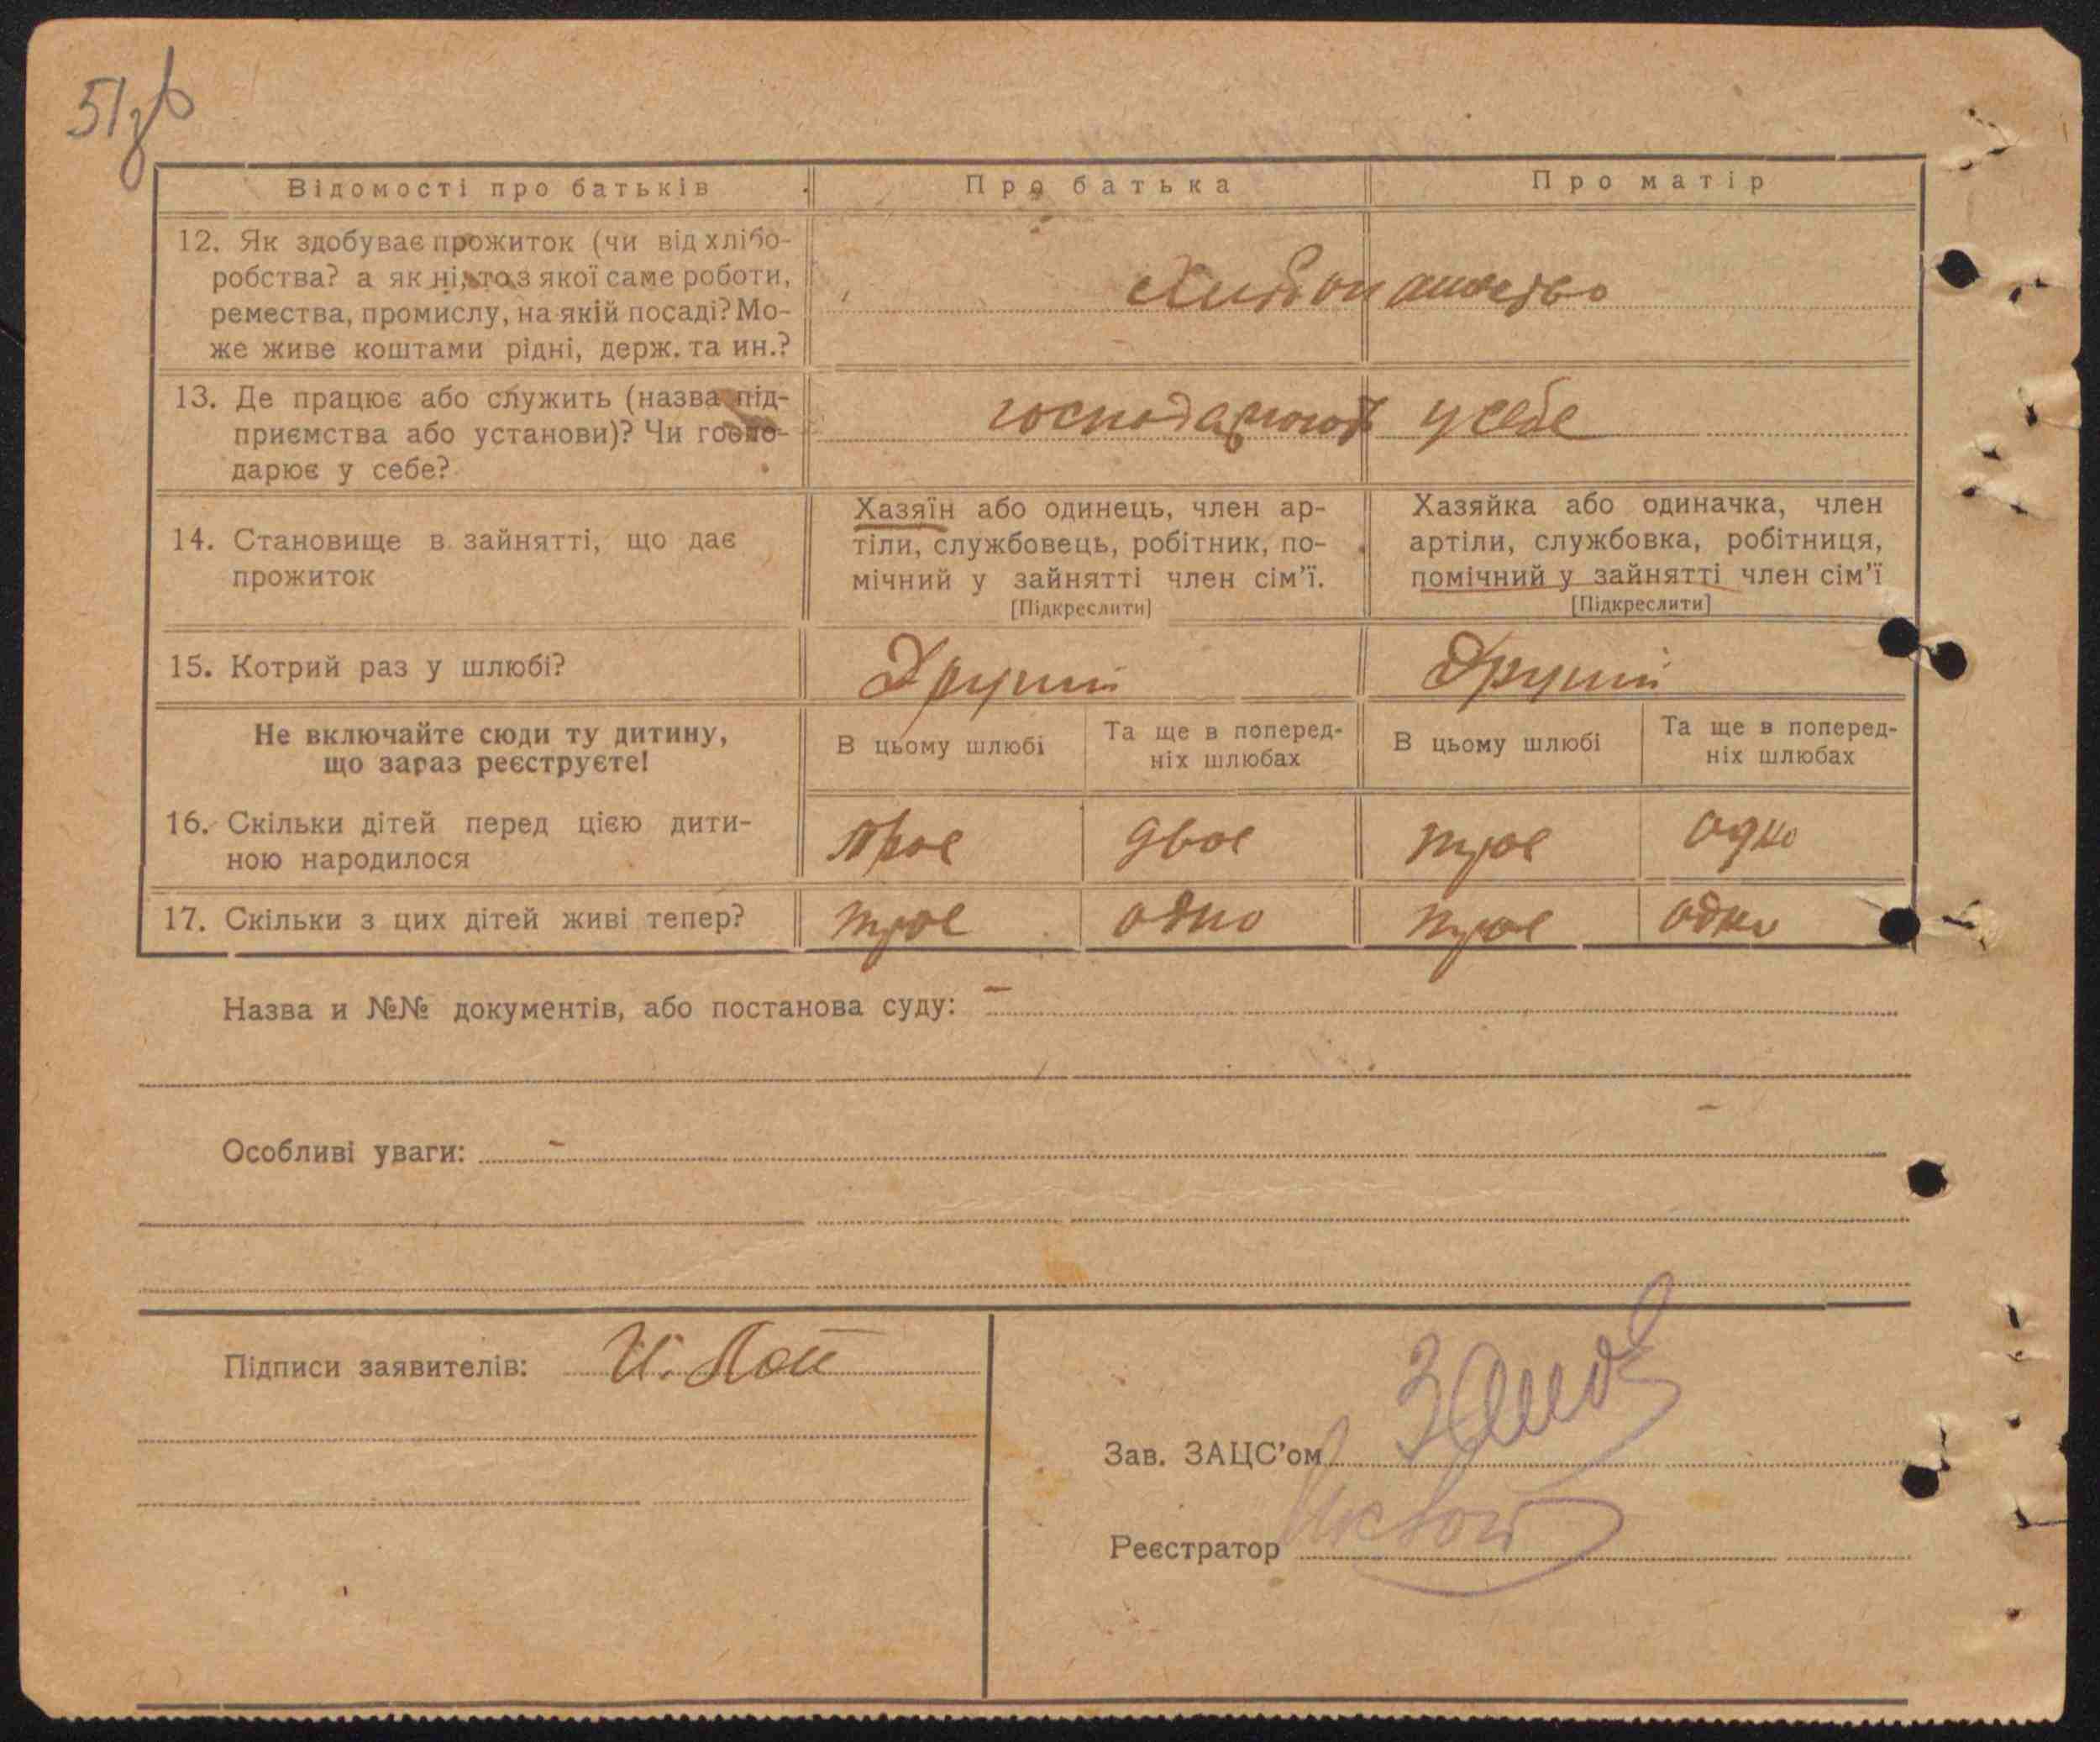 51зв
Відомості про батьків
Про батька
Про матір
12. Як здобуває прожиток (чи від хлібо-
робства? а як ні, то з якої саме роботи,
ремества, промислу, на якій посаді? Мо-
же живе коштами рідні, держ. та ин.?
13. Де працює або служить (назва під-
приємства або установи)? Чи госпо-
дарює у себе?
господарюют у себе
14. Становище в зайнятті, що дає
прожиток
Хазяїн або одинець, член ар-
тіли, службовець, робітник, по-
мічний у зайнятті член сім'ї.
[Підкреслити]
Хазяйка або одиначка, член
артіли, службовка, робітниця,
помічний у зайнятті член сім'ї
[Підкреслити]
15. Котрий раз у шлюбі?
Другий
Другий
Не включайте сюди ту дитину,
що зараз реєструєте!
В цьому шлюбі
Та ще в поперед-
ніх шлюбах
В цьому шлюбі
Та ще в поперед-
ніх шлюбах
16. Скільки дітей перед цією дити-
ною народилося
трое
двое
трое
одно
17. Скільки з цих дітей живі тепер?
трое
одно
трое
одно
Назва и №№ документів, або постанова суду: –
Особливі уваги: –
Підписи заявителів:
Зав. ЗАЦС'ом
Реєстратор